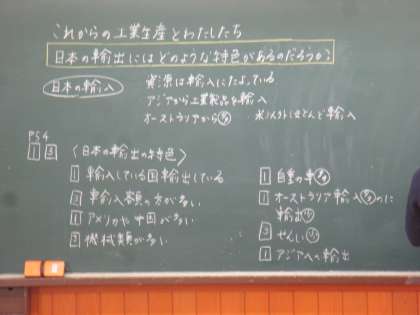 これからの工業生産とわたしたち
日本の輸出にはどのような特色があるのだろうか?
日本の輸入 資源は輸入にたよっている
アジアから工業製品を輸入
オーストラリアから多 ほとんど輸入
P54
1 3 〈日本の輸出の特色〉
1 輸入している国輸出している
3 輸入額の方が多い
1 アメリカや中国が多い
3 機械類が多い
1 自動車多
1 オーストラリア輸入多のに
輸出少
3 せんい少
1 アジアへの輸出